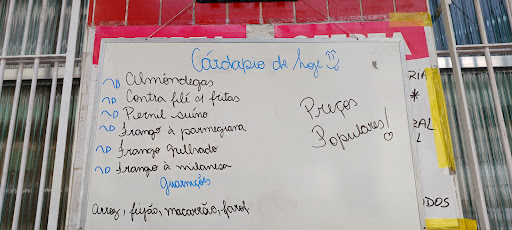 Cárdapio de hoje
Almôndegas
Contra filé c/ fritas
Pernil suíno
Frango à parmegiana
Frango Grelhado
Frango à milanesa
Guarnições
Arroz, feijão, macarrão, farof
Preços
Populares!